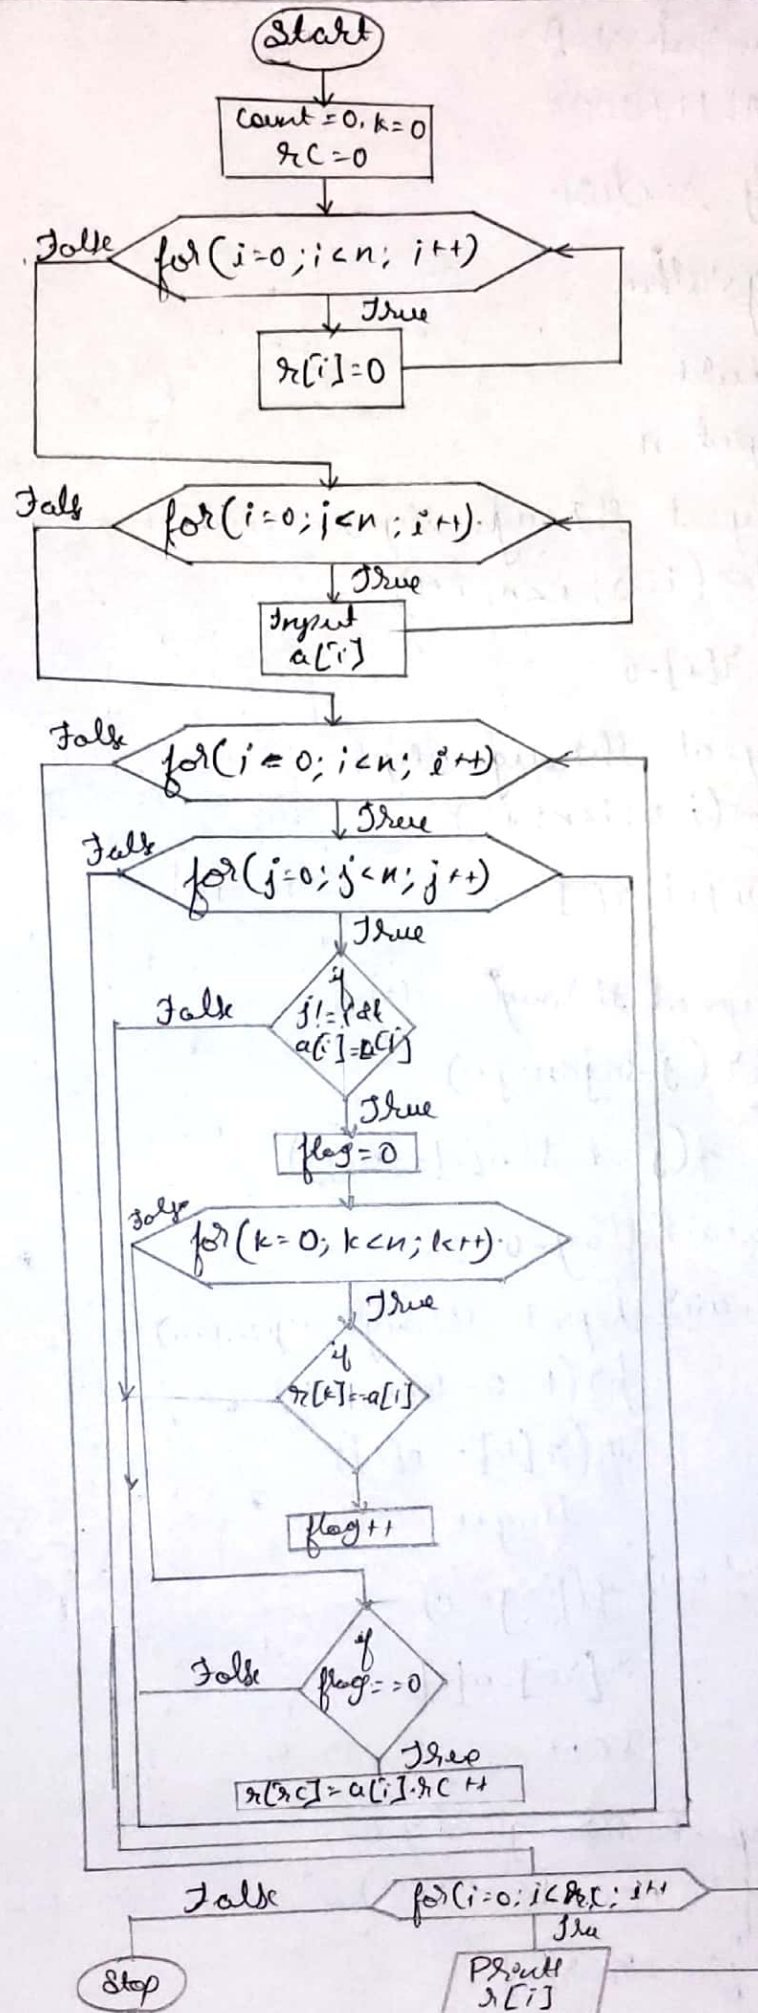 Start
Count = 0, k = 0
rC = 0
False
for(i=0; i<n; i++)
True
r[i]=0
Fals
for(i=0; j<n; i++)
True
Input
a[i]
False
for(i = 0; i<n; i++)
True
False
for(j=0; j<n; j++)
True
if
False
j!=i &&
a[i]=a[j]
True
flag = 0
False
for(k= 0; k<n; k++)
True
if
r[k]==a[i]
flag++
if
False
flag==0
True
r[rc]=a[i].rc ++
False
for(i=0; i<rc; i++
Tru
Stop
Print
r[i]